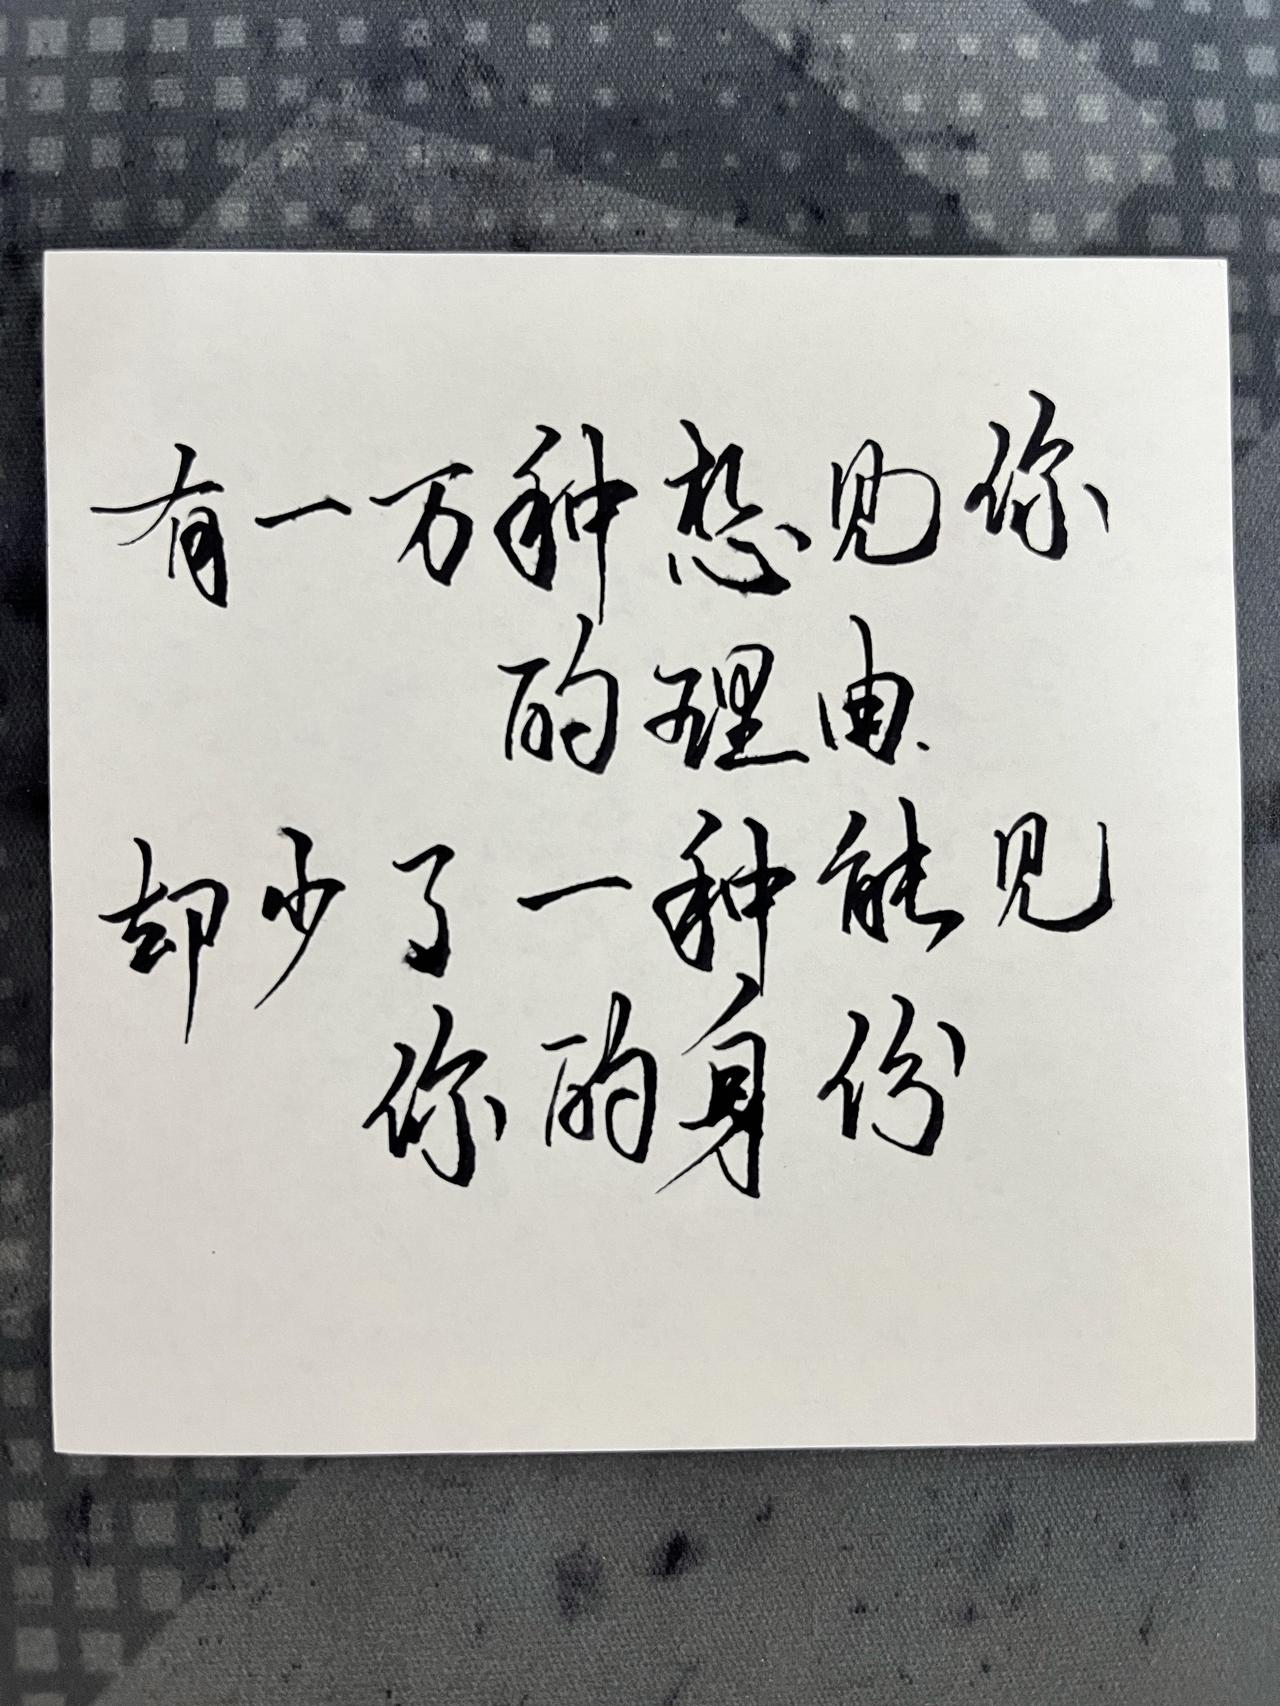 有一万种想见你
的理由.
却少了一种能见
你的身份